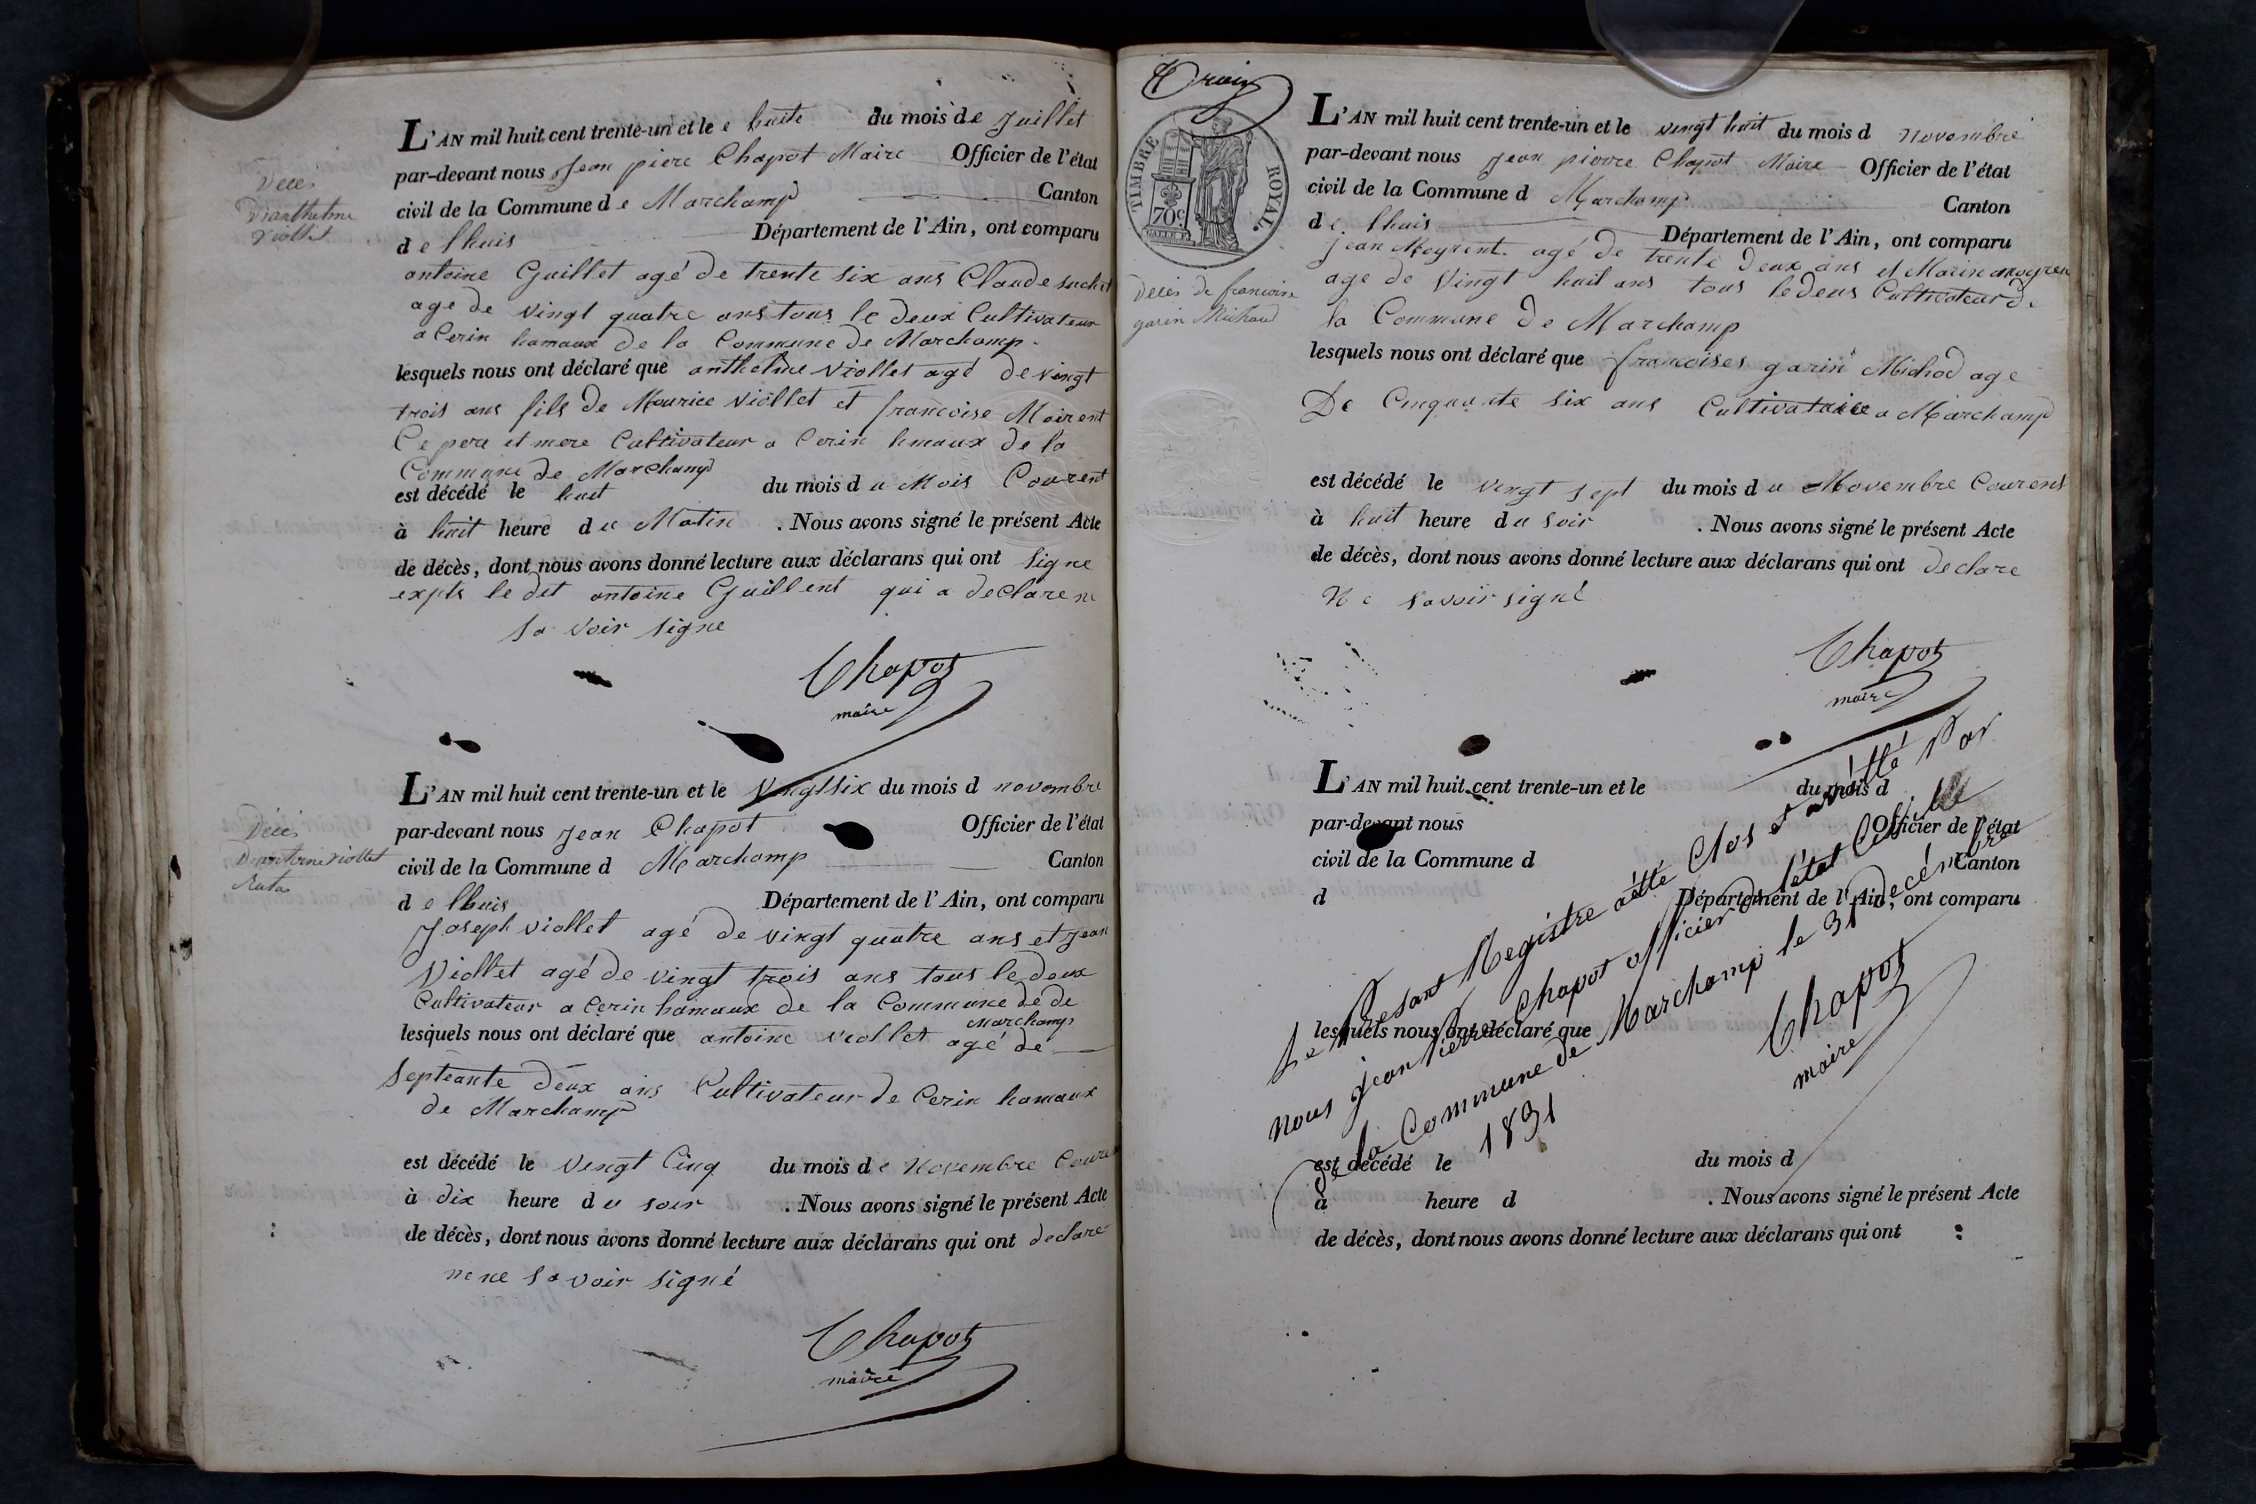 Décès
D'anthelme
Viollet
L'AN mil huit cent trente-un et le e huite du mois de Juillet
par-devant nous Jean piere Chapot Maire Officier de l'état
civil de la Commune de Marchamp Canton
de lhuis Département de l'Ain, ont comparu
antoine Guillet agé de trente six ans Claude suchet
age de vingt quatre ans tous le deux Cultivateur
a Cerin hamaux de la Commune de Marchamp
lesquels nous ont déclaré que anthelme Viollet agé de vingt
trois ans fils de Mourice Viollet et francoise Moirent
Ce pere et mere Cultivateur a Cerin hmaux de la
Commune de Marchamp
est décédé le huit du mois du Mois Courent
à huit heure du Matin . Nous avons signé le présent Acte
de décès, dont nous avons donné lecture aux déclarans qui ont signe
expts le dit antoine Guillent qui a declare ne
sa voir signe
Chapot
maire
Décès
D'antoine Viollet
L'AN mil huit cent trente-un et le Vingt six du mois d novembre
par-devant nous Jean Chapot Officier de l'état
civil de la Commune d Marchamp Canton
de lhuis Département de l'Ain, ont comparu
Joseph Viollet agé de vingt quatre ans et Jean
Viollet agé de vingt trois ans tous le deux
Cultivateur a Cerin hamaux de la Commune de de
Marchamp
lesquels nous ont déclaré que antoine Viollet agé de
Septeante deux ans Cultivateur de Cerin hamaux
de Marchamp
est décédé le Vingt Cinq du mois de Novembre Coure
à dix heure du soir . Nous avons signé le présent Acte
de décès, dont nous avons donné lecture aux déclarans qui ont declare
ne ne sa voir signé
Chapot
maire
Trois
TIMBRE ROYAL.
70c
Décès de francoise
garin Michaud
L'AN mil huit cent trente-un et le vingt huit du mois d novembre
par-devant nous Jean pierre Chapot Maire Officier de l'état
civil de la Commune d Marchamp Canton
de lhuis Département de l'Ain, ont comparu
Jean Meyrent agé de trente Deux ans et Marin
age de Vingt huit ans tous le deux Cultivateur de
la Commune de Marchamp
lesquels nous ont déclaré que francoises garin Michod age
De Cinquante six ans Cultivataire a Marchamp
est décédé le vingt sept du mois du Novembre Courens
à huit heure du soir . Nous avons signé le présent Acte
de décès, dont nous avons donné lecture aux déclarans qui ont declare
Ne savoir signé
Chapot
maire
L'AN mil huit cent trente-un et le du mois d
par-devant nous Officier de l'état
civil de la Commune d Canton
d Département de l'Ain, ont comparu
lesquels nous ont déclaré que
est décédé le du mois d
à heure d . Nous avons signé le présent Acte
de décès, dont nous avons donné lecture aux déclarans qui ont :
Le Presant Registre aétté Clos et arrétté Par
nous Jean Pierre Chapot officier de l'état Civille
de la Commune de Marchamp le 31 decémbre
1831
Chapot
maire